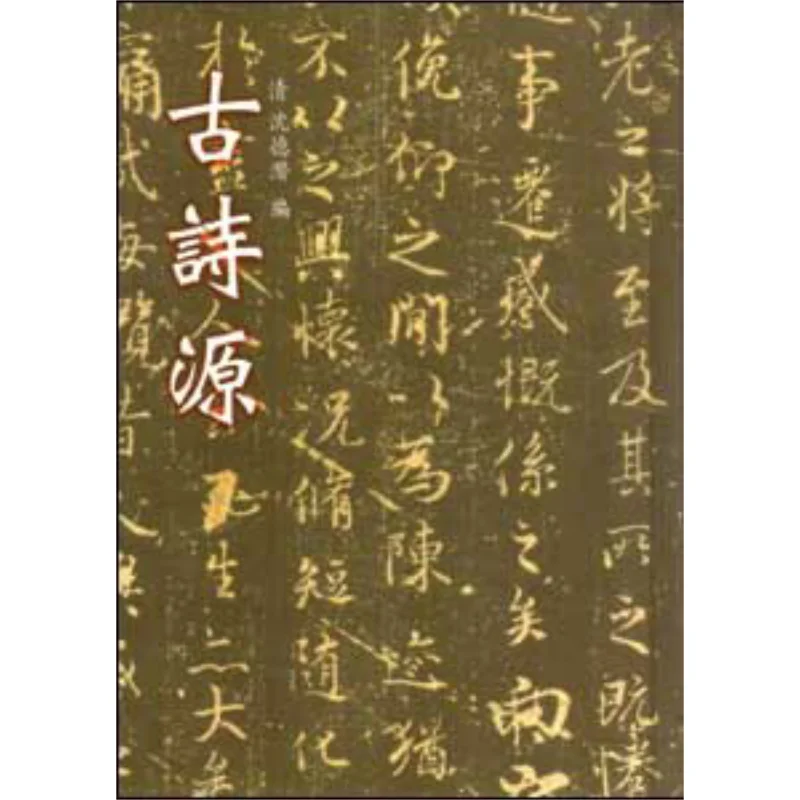 古詩源
清 沈德潛 編
老之將至及其所之既惓
事遷感慨係之矣向之
俛仰之閒以為陳迹猶
不以之興懷況脩短隨化
於 死生亦大矣
痛哉每覽昔人興感